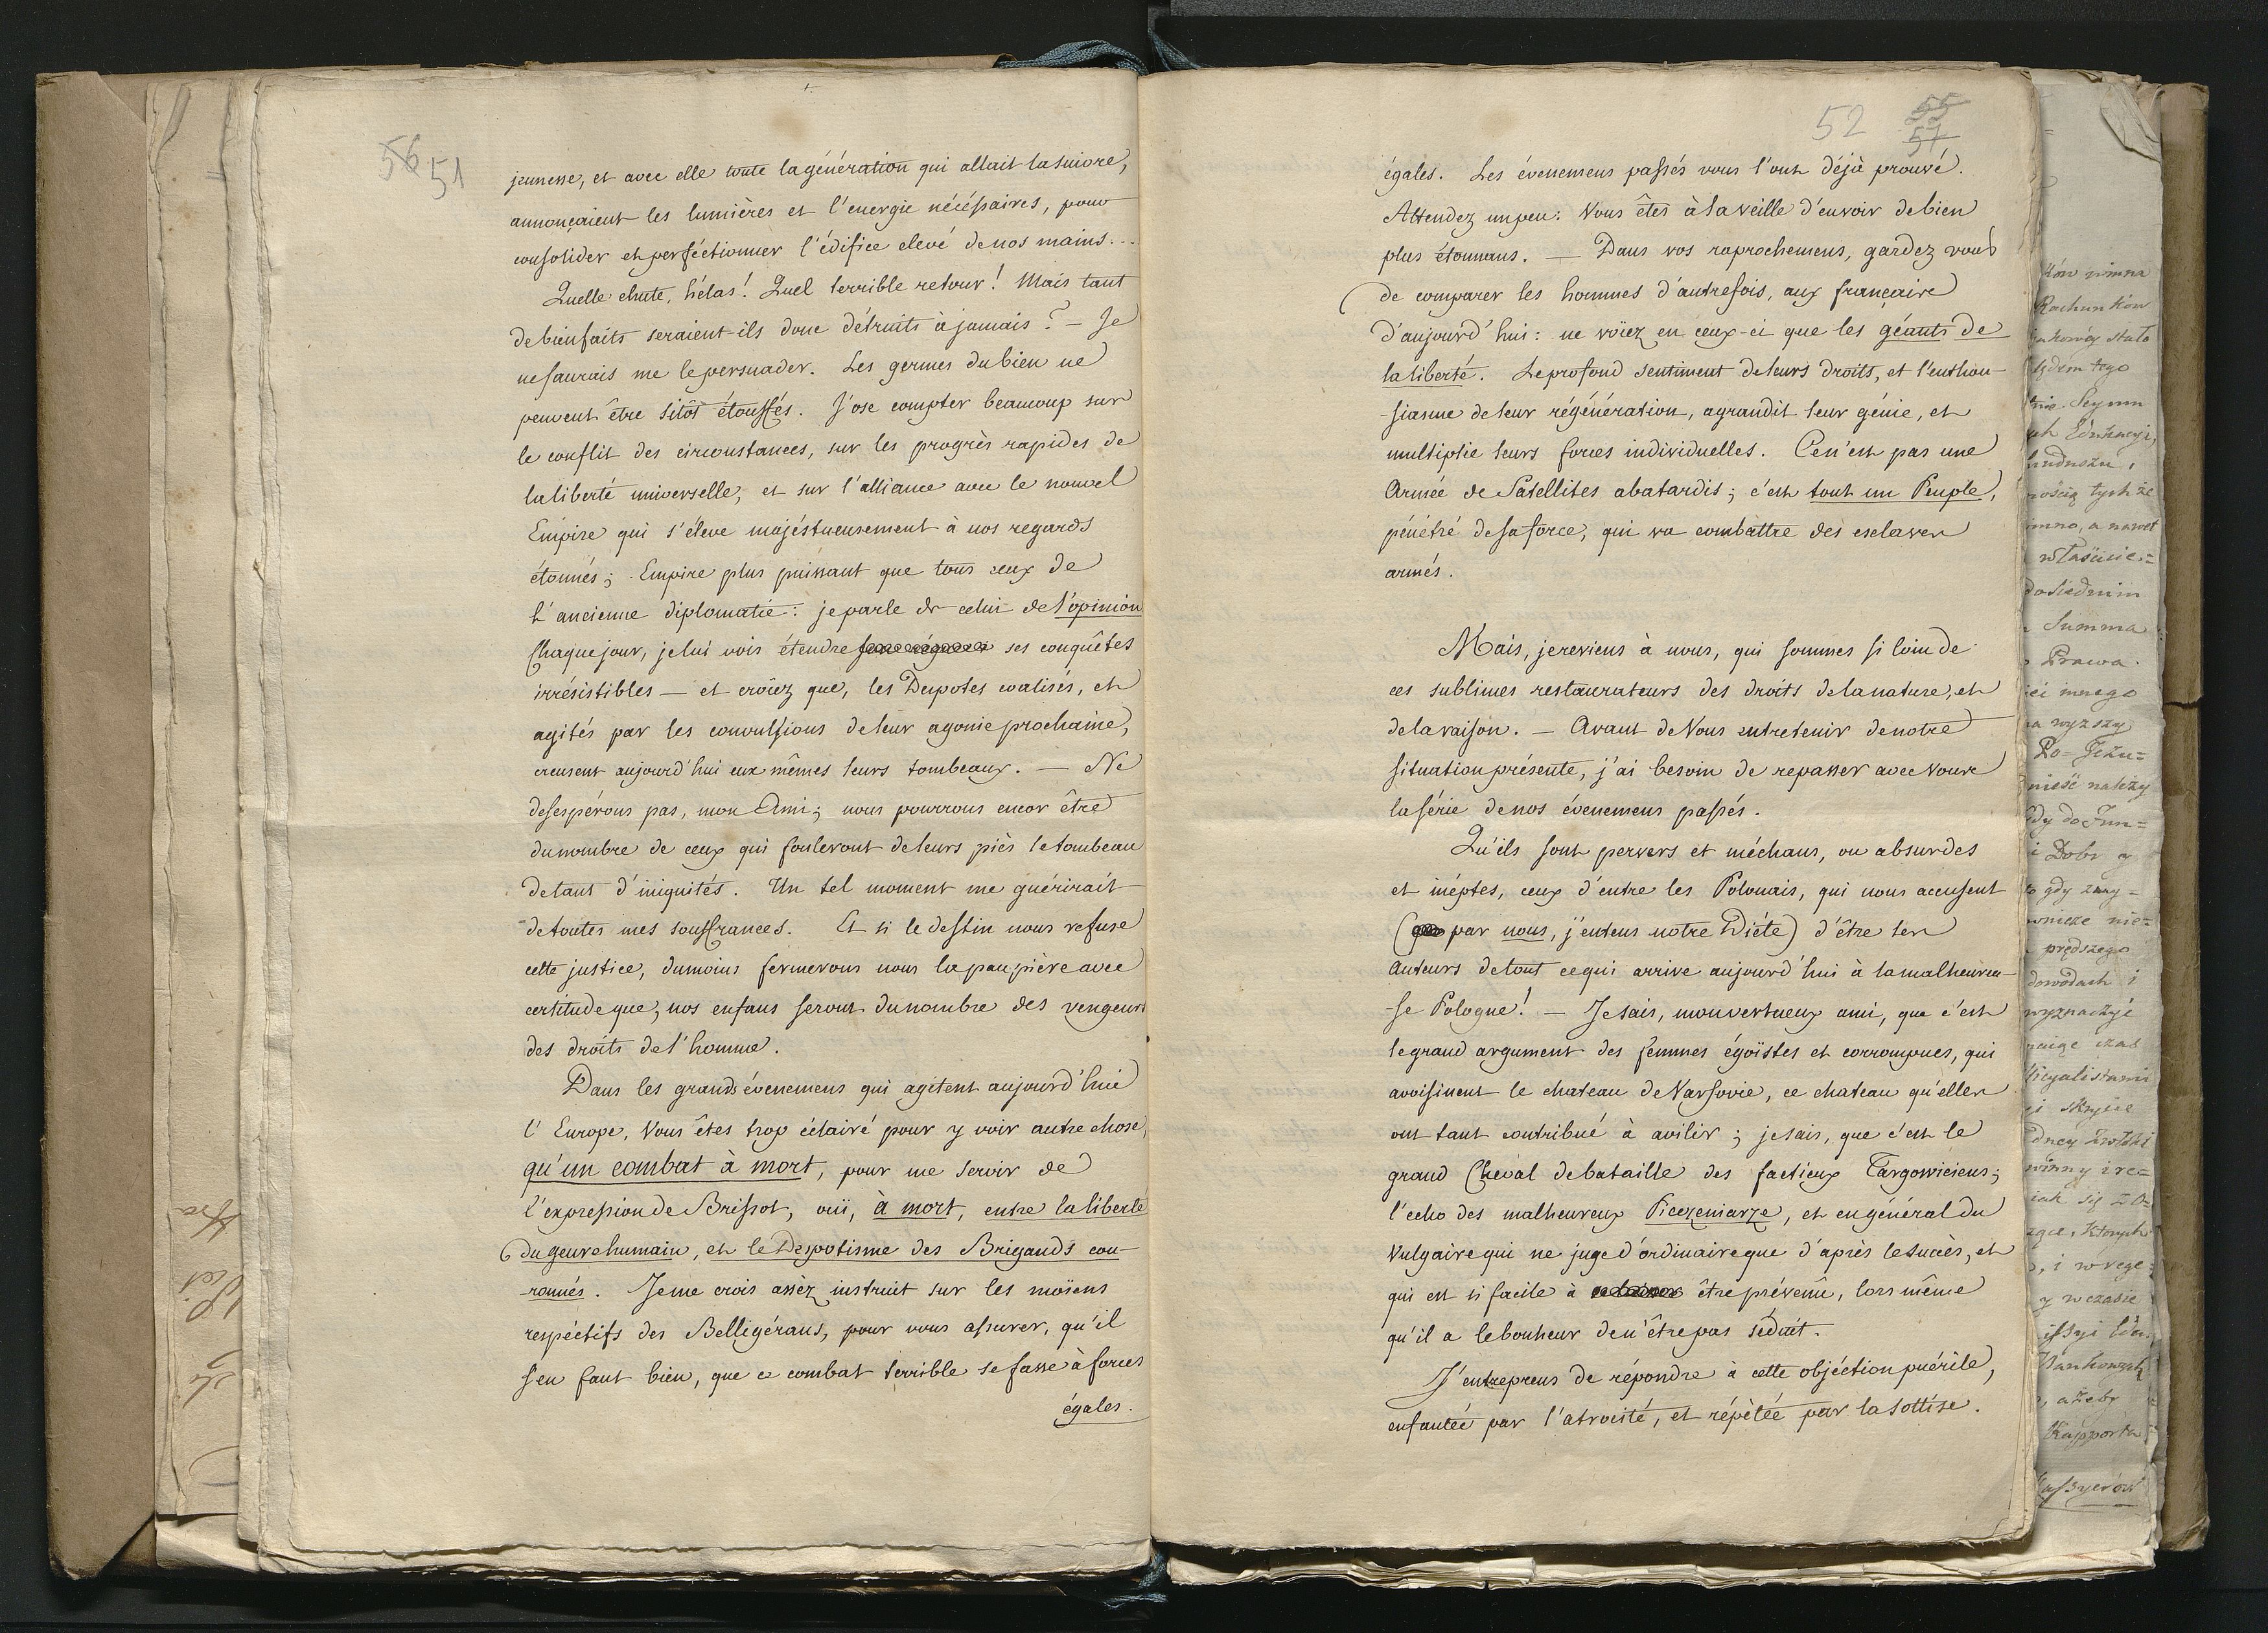 56 51
jeunesse, et avec elle toute la génération qui allait la suivre,
annonçaient les lumières et l'energie nécéssaires, pour
consolider et perféctionner l'édifice elevé de nos mains...
Quelle chute, hélas! Quel terrible retour! Mais tant
de bienfaits seraient-ils donc détruits à jamais? — Je
ne saurais me le persuader. Les germes du bien ne
peuvent être sitôt étouffés. J'ose compter beaucoup sur
le conflit des circonstances, sur les progrès rapides de
la liberté universelle, et sur l'alliance avec le nouvel
Empire qui s'éleve majéstueusement à nos regards
étonnés; Empire plus puissant que tous ceux de
l'ancienne diplomatie: je parle de celui de l'opinion
Chaque jour, je lui vois étendre ses conquêtes
irrésistibles — et croïez que, les Despotes coalisés, et
agités par les convulsions de leur agonie prochaine,
creusent aujourd'hui eux mêmes leurs tombeaux. — Ne
desespérons pas, mon Ami; nous pourrons encor être
du nombre de ceux qui fouleront de leurs piés le tombeau
de tant d'iniquités. Un tel moment me guérirait
de toutes mes souffrances. Et si le destin nous refuse
cette justice, du moins fermerons nous la paupière avec
certitude que, nos enfans seront du nombre des vengeurs
des droits de l'homme.
Dans les grands évenemens qui agitent aujourd'hui
l'Europe, Vous êtes trop éclairé pour y voir autre chose,
qu'un combat à mort, pour me servir de
l'expression de Brissot, ouï, à mort, entre la liberté
du genre humain, et le Despotisme des Brigands cou-
-ronnés. Je me crois assez instruit sur les moïens
respéctifs des Belligérans, pour vous assurer, qu'il
s'en faut bien, que ce combat terrible se fasse à forces
égales.
52 55
57
égales. Les évenemens passés vous l'ont déjà prouvé.
Attendez un peu: Vous êtes à la veille d'en voir de bien
plus étonnans. — Dans vos raprochemens, gardez vous
de comparer les hommes d'autrefois, aux français
d'aujourd'hui: ne voïez en ceux-ci que les géants de
la liberté. Le profond sentiment de leurs droits, et l'enthou-
-siasme de leur régénération, agrandit leur génie, et
multiplie leurs forces individuelles. Ce n'est pas une
Armée de Satellites abatardis; c'est tout un Peuple,
pénétré de sa force, qui va combattre des esclaves
armés.
Mais, je reviens à nous, qui sommes si loin de
ces sublimes restaurateurs des droits de la nature, et
de la raison. — Avant de Vous entretenir de notre
situation présente, j'ai besoin de repasser avec Vous
la série de nos évenemens passés.
Qu'ils sont pervers et méchans, ou absurdes
et inéptes, ceux d'entre les Polonais, qui nous accusent
(par nous, j'entens notre Diéte) d'être les
Auteurs de tout ce qui arrive aujourd'hui à la malheureu-
-se Pologne! — Je sais, mon vertueux ami, que c'est
le grand argument des femmes égoïstes et corrompues, qui
avoisinent le chateau de Varsovie, ce chateau qu'elles
ont tant contribué à avilir; je sais, que c'est le
grand Cheval de bataille des factieux Targowiciens;
l'echo des malheureux Pieczeniarze, et en général du
Vulgaire qui ne juge d'ordinaire que d'après le succès, et
qui est si facile à être prévenû, lors même
qu'il a le bonheur de n'être pas séduit.
J'entreprens de répondre à cette objéction puérile,
enfantée par l'atrocité, et répétée par la sottise.
Summa
Prawa